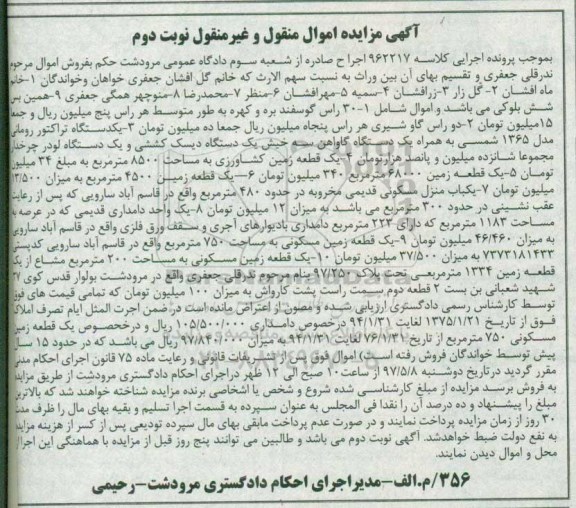 آگهی مزایده اموال منقول و غیرمنقول نوبت دوم
بموجب پرونده اجرایی کلاسه ۹۶۲۲۱۷ اجرا ج صادره از شعبه سوم دادگاه عمومی مرودشت حکم بفروش اموال مرحوم
ندرقلی جعفری و تقسیم بهای آن بین وراث به نسبت سهم الارث که خانم گل افشان جعفری خواهان وخواندگان ۱-خانم
ماه افشان ۲- گل زار ۳-زرافشان ۴-سمیه ۵-مهرافشان ۶-منظر ۷-محمدرضا ۸-منوچهر همگی جعفری ۹-همین بس
شش بلوکی می باشند و اموال شامل ۱-۳۰ راس گوسفند بره و کهره به طور متوسط هر راس پنج میلیون ریال و جمعا
۱۵میلیون تومان ۲-دو راس گاو شیری هر راس پنجاه میلیون ریال جمعا ده میلیون تومان ۳-یکدستگاه تراکتور رومانی
مدل ۱۳۶۵ شمسی به همراه یک دستگاه گاواهن سه خیش یک دستگاه دیسک کششی و یک دستگاه لودر چرخدار
مجموعا شانزده میلیون و پانصد هزارتومان ۴-یک قطعه زمین کشاورزی به مساحت ۸۵۰۰ مترمربع به مبلغ ۳۴ میلیون
تومان ۵-یک قطعه زمین ۶۸۰۰۰ مترمربع ۳۴۰ میلیون تومان ۶-یک قطعه زمین ۴۵۰۰ مترمربع به میزان ۱۳/۵۰۰
میلیون تومان ۷-یکباب منزل سکونی قدیمی مخروبه در حدود ۴۸۰ مترمربع واقع در قاسم آباد سارویی که پس از رعایت
عقب نشینی در حدود ۳۰۰ مترمربع می باشد به میزان ۱۲ میلیون تومان ۸-یک واحد دامداری قدیمی که در عرصه به
مساحت ۱۱۸۳ مترمربع که دارای ۲۲۳ مترمربع دامداری بادیوارهای آجری و سقف ورق فلزی واقع در قاسم آباد سارویی
به میزان ۴۶/۴۶۰ میلیون تومان ۹-یک قطعه زمین مسکونی به مساحت ۷۵۰ مترمربع واقع در قاسم آباد سارویی کدپستی
۷۳۷۳۱۸۱۴۳۳ به میزان ۳۷/۵۰۰ میلیون تومان ۱۰-یک قطعه زمین مسکونی به مساحت ۲۰۰ مترمربع مشاع از یک
قطعه زمین ۱۳۳۴ مترمربعی تحت پلاک ۹۷/۲۵۰ بنام مرحوم ندرقلی جعفری واقع در مرودشت بولوار قدس کوی ۲۷
شهید شعبانی بن بست ۲ قطعه دوم سمت راست پشت کارواش به میزان ۱۰۰ میلیون تومان که تمامی قیمت های فوق
توسط کارشناس رسمی دادگستری ارزیابی شده و مصون از اعتراض مانده است در ضمن اجرت المثل ایام تصرف املاک
فوق از تاریخ ۱۳۷۵/۱/۲۱ لغایت ۹۴/۱/۳۱ درخصوص دامداری ۱۰۵/۵۰۰/۰۰۰ ریال و درخصوص یک قطعه زمین
مسکونی ۷۵۰ مترمربع از تاریخ ۷۶/۱/۳۱ لغایت ۹۴/۱/۳۱ به میزان ۹۷/۸۴۰/۰۰۰ ریال می باشد که در حدود ۱۵ سال
پیش توسط خواندگان فروش رفته است) اموال فوق پس از تشریفات قانونی و رعایت ماده ۷۵ قانون اجرای احکام مدنی
مقرر گردید درتاریخ دوشنبه ۹۷/۵/۸ از ساعت ۱۰ صبح الی ۱۲ ظهر دراجرای احکام دادگستری مرودشت از طریق مزایده
به فروش برسد مزایده از مبلغ کارشناسی شده شروع و شخص یا اشخاصی برنده مزایده شناخته خواهند شد که بالاترین
مبلغ را پیشنهاد و ده درصد آن را نقدا فی المجلس به عنوان سپرده به قسمت اجرا تسلیم و بقیه بهای مال را ظرف مدت
۳۰ روز از زمان مزایده پرداخت نمایند و در صورت عدم پرداخت مابقی بهای مال سپرده تودیعی پس از کسر از هزینه مزایده
به نفع دولت ضبط خواهدشد. آگهی نوبت دوم می باشد و طالبین می توانند پنج روز قبل از مزایده با هماهنگی این اجرا از
محل و اموال دیدن نمایند.
۳۵۶/م.الف-مدیراجرای احکام دادگستری مرودشت-رحیمی